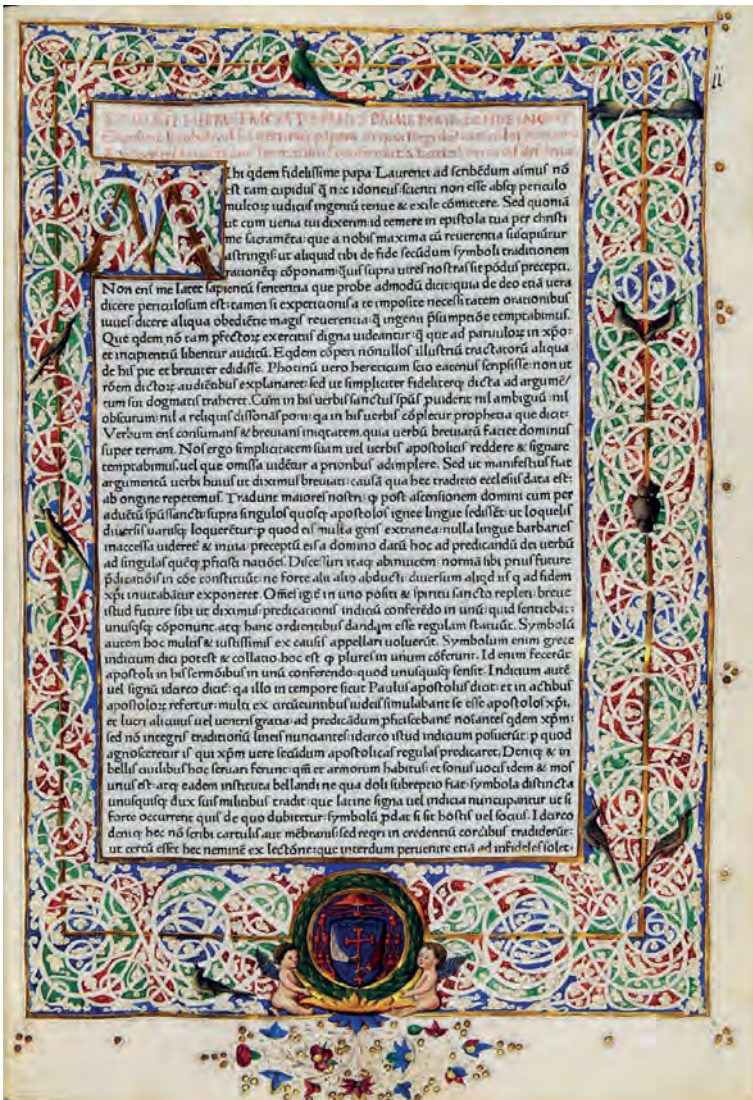 ii
M Ibi qdem fidelissime papa Laurenti ad scribēdum aīmus nō
est tam cupidus q̄ nec idoneus: scienti non esse absq; periculo
multoꝝ iudiciis ingeniū tenue & exile cōmittere. Sed quoniā
ut cum uenia tui dixerim: id temere in epistola tua per christi
me sacramēta: que a nobis maxima cū reuerentia suscipiūtur
astringis: ut aliquid tibi de fide secūdum symboli traditionem
rationēq; cōponam: quis supra uires nostras sit pōdus precepti.
Non eni me latet sapientū sententia que probe admodū dicit: quia de deo etiā uera
dicere periculosum est: tamen si expetitionis a te imposite necessitatem orationibus
iuues: dicere aliqua obediētie magis reuerentia: q̄ ingenii p̄sumptiōe temptabimus.
Que qdem nō tam pfectoꝝ exercitiis digna uideantur: q̄ que ad paruuloꝝ in xp̄o:
et incipientiū libentur auditū. Eqdem cōperi nōnullos illustriū tractatorū aliqua
de his pie et breuiter edidisse. Photinū uero hereticum scio eatenus scripsisse: non ut
rōem dictoꝝ audiētibus explanaret: sed ut simpliciter fideliterq; dicta ad argumē/
tum sui dogmatis traheret. Cum in his uerbis sanctus spūs prouiderit nil ambiguū: nil
obscurum: nil a reliquis dissonās poni: qa in his uerbis cōpletur prophetia que dicit:
Verbum eni consumans & breuians iniqtatem, quia uerbū breuiatū faciet dominus
super terram. Nos ergo simplicitatem suam uel uerbis apostolicis reddere & signare
temptabimus: uel que omissa uidētur a prioribus adimplere. Sed ut manifestius fiat
argumentū uerbi huius ut diximus breuiati: causā qua hec traditio ecclesiis data est:
ab origine repetemus. Tradunt maiores nostri: ꝙ post ascensionem domini cum per
aduētū spūssancti: supra singulos quosq; apostolos ignee lingue sedissēt: ut loquelis
diuersis uariisq; loquerētur: p quod eis nulla gens extranea: nulla lingue barbaries
inaccessa uideret & inuia: preceptū eis a domino datū hoc ad predicandū dei uerbū
ad singulas quēq; pficisci natiōes. Discessuri itaq; abinuicem: normā sibi prius future
p̄dicatiōis in cōe constituūt: ne forte alii alio abducti: diuersum aliqd iis q ad fidem
xp̄i inuitabātur exponeret. Omēs igiē in uno positi & spiritu sancto repleti: breue
istud future sibi ut diximus: predicationis indiciū conferēdo in unū: quid sentiebat:
unusqsq; cōponunt. atq; hanc credentibus dandam esse regulam statuūt. Symbolū
autem hoc multis & iustissimis ex causis appellari uoluerūt. Symbolum enim grece
indicium dici potest & collatio: hoc est ꝙ plures in unum cōferunt. Id enim fecerūt
apostoli in his sermōibus in unū conferendo: quod unusquisq; sensit. Indicium autē
uel signū idarco dicit: qa illo in tempore sicut Paulus apostolus dicit: et in actibus
apostoloꝝ refertur: multi ex circūcuntibus iudeis simulabant se esse apostolos xp̄i,
et lucri alicuius uel uentris gratia: ad predicādum pficiscebant nosantes qdem xp̄m:
sed nō integris traditionū lineis nunciantes: idarco istud indicium posuerūt: p quod
agnosceretur is qui xp̄m uere secūdum apostolicas regulas predicaret. Deniq; & in
bellis ciuilibus hoc seruari ferunt: qm̄ et armorum habitus: et sonus uocis idem & mos
unus est: atq; eadem instituta bellandi: ne qua doli subreptio fiat: symbola distincta
unusquisq; dux suis militibus tradit: que latine signa uel indicia nuncupantur: ut si
forte occurrerit quis de quo dubitetur: symbolū p̄dat si sit hostis uel socius. Idarco
deniq; hec nō scribi cartulis aut mēbranis: sed retineri in credentiū cordibus tradiderūt:
ut certū esset hec neminē ex lectōne: que interdum peruenire etiā ad infideles solet: